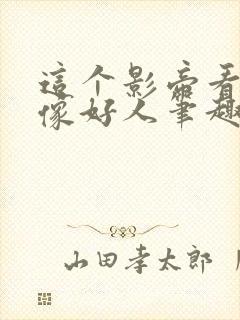 這个影帝看
像好人筆趣
山田孝太郎